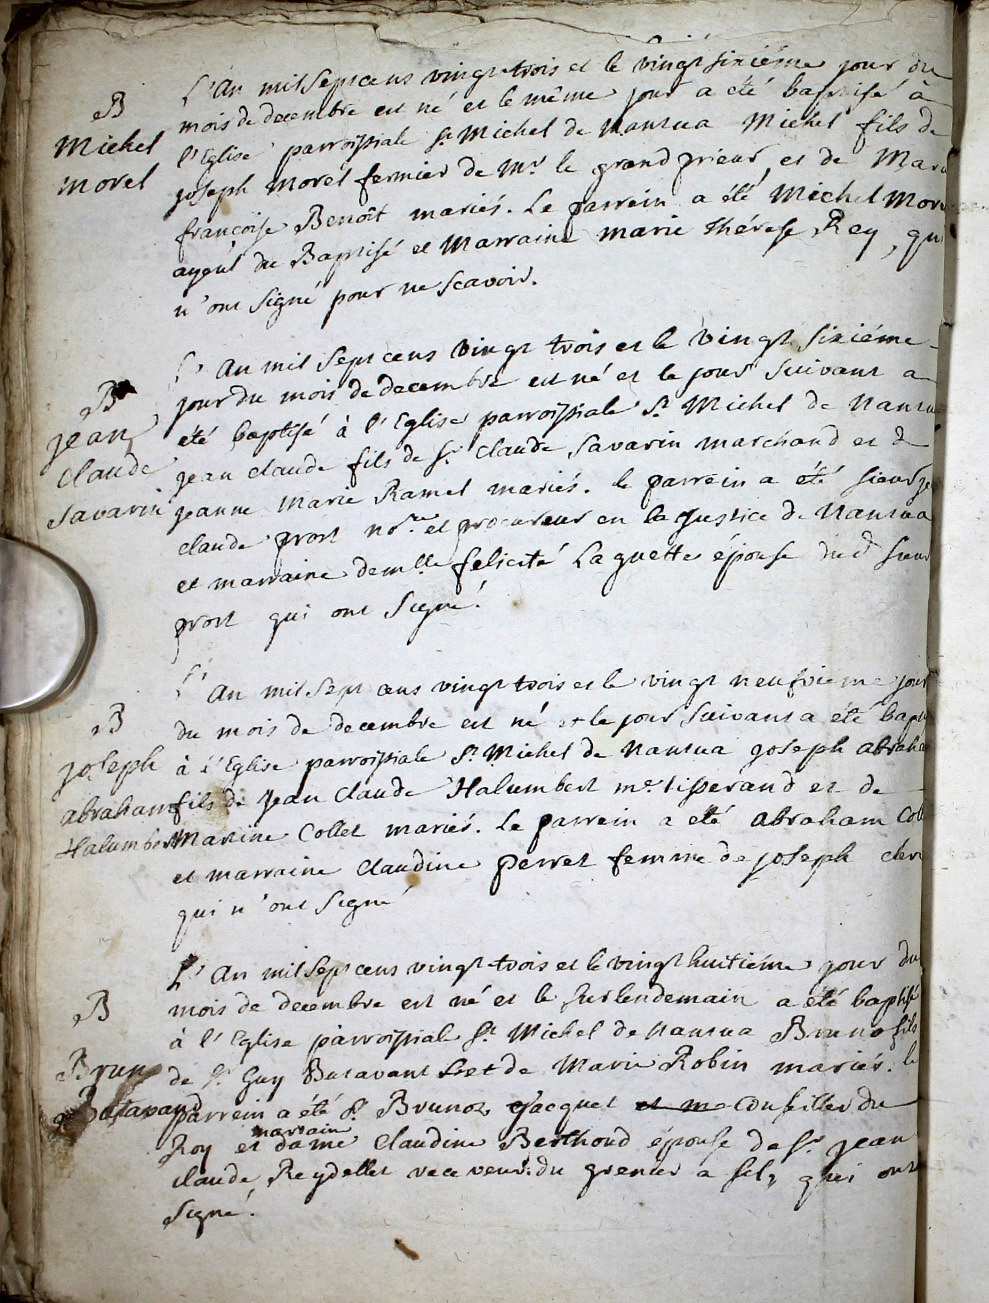 B
Michel
Morel
L'An mil Sept cens vingt trois et le vingt sixiéme jour du
mois de decembre est né et le même jour a été baptisé à
l'Eglise parroissiale St Michel de Nantua Michel fils de
joseph Morel fermier de Mr. le grand prieur, et de Marie
francoise Benoît mariés. Le parrein a été Michel Morel
ayeul du Baptisé et Marraine marie thérese Rey, qui
n'ont signé pour ne scavoir.
B
jean
Claude
Savarin
L'An mil Sept cens vingt trois et le vingt sixiéme
jour du mois de decembre est né et le jour suivant a
été baptisé à l'Eglise parroissiale St. Michel de Nantua
jean claude fils de Sr. Claude Savarin marchand et de
jeanne Marie Ramel mariés. le parrein a été sieur je
claude prost nore. et procureur en la justice de Nantua
et marraine demlle felicité Laguette épouse du dt sieur
prost qui ont signé.
B
joseph
abraham
Halumbert
L'An mil Sept cens vingt trois et le vingt neufvieme jour
du mois de decembre est né et le jour suivant a été bapt
à l'Eglise parroissiale St. Michel de Nantua joseph abraham
fils de jean claude Halumbert me. tisserand et de
Martine Collet mariés. Le parrein a été abraham Coll
et marraine claudine perret femme de joseph clerc
qui n'ont signé
B
Brun
Batavand
L'An mil Sept cens vingt trois et le vingt huitiéme jour du
mois de decembre est né et le surlendemain a été baptisé
à l'Eglise parroissiale St. Michel de Nantua Bruno fils
de Sr. Guy Batavant et de Marie Robin mariés. le
parrein a été Sr. Brunot jacquet et m conseiller du
marraine
Roy et dame claudine Berthoud épouse de Sr. jean
claude Reydellet receveur du grenier a sel, qui ont
signé.